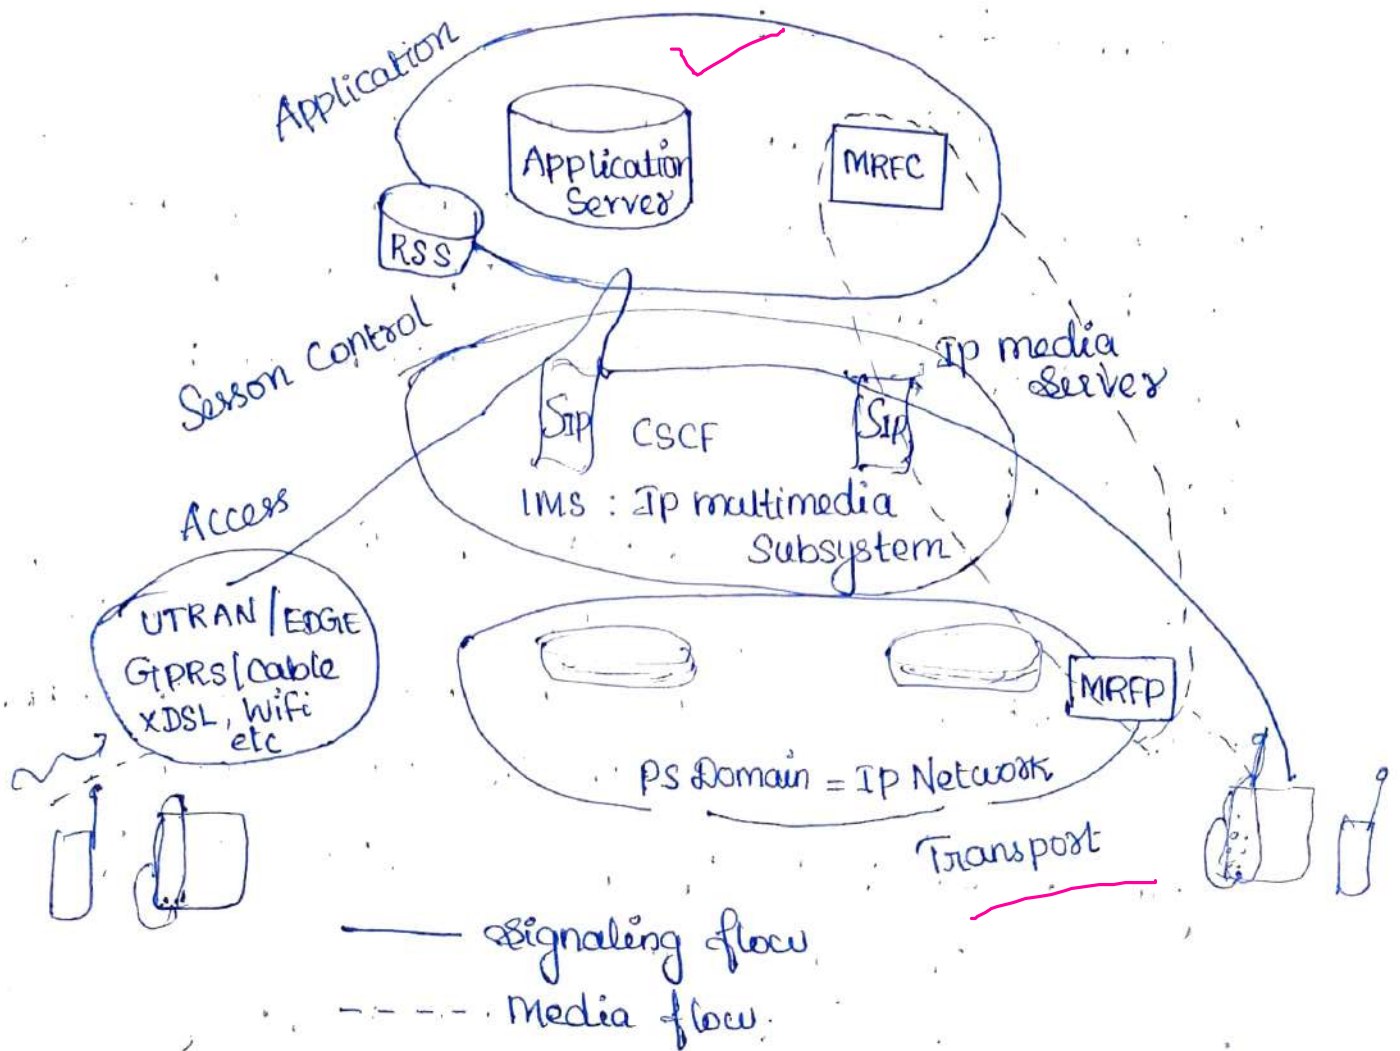 Application
Application
Server
MRFC
RSS
Sesson Control
Ip media
Server
SIP
CSCF
SIP
IMS : Ip multimedia
Subsystem
Access
UTRAN/EDGE
GPRS/Cable
XDSL, Wifi
etc
MRFP
PS Domain = Ip Network
Transport
Signaling flow
Media flow.